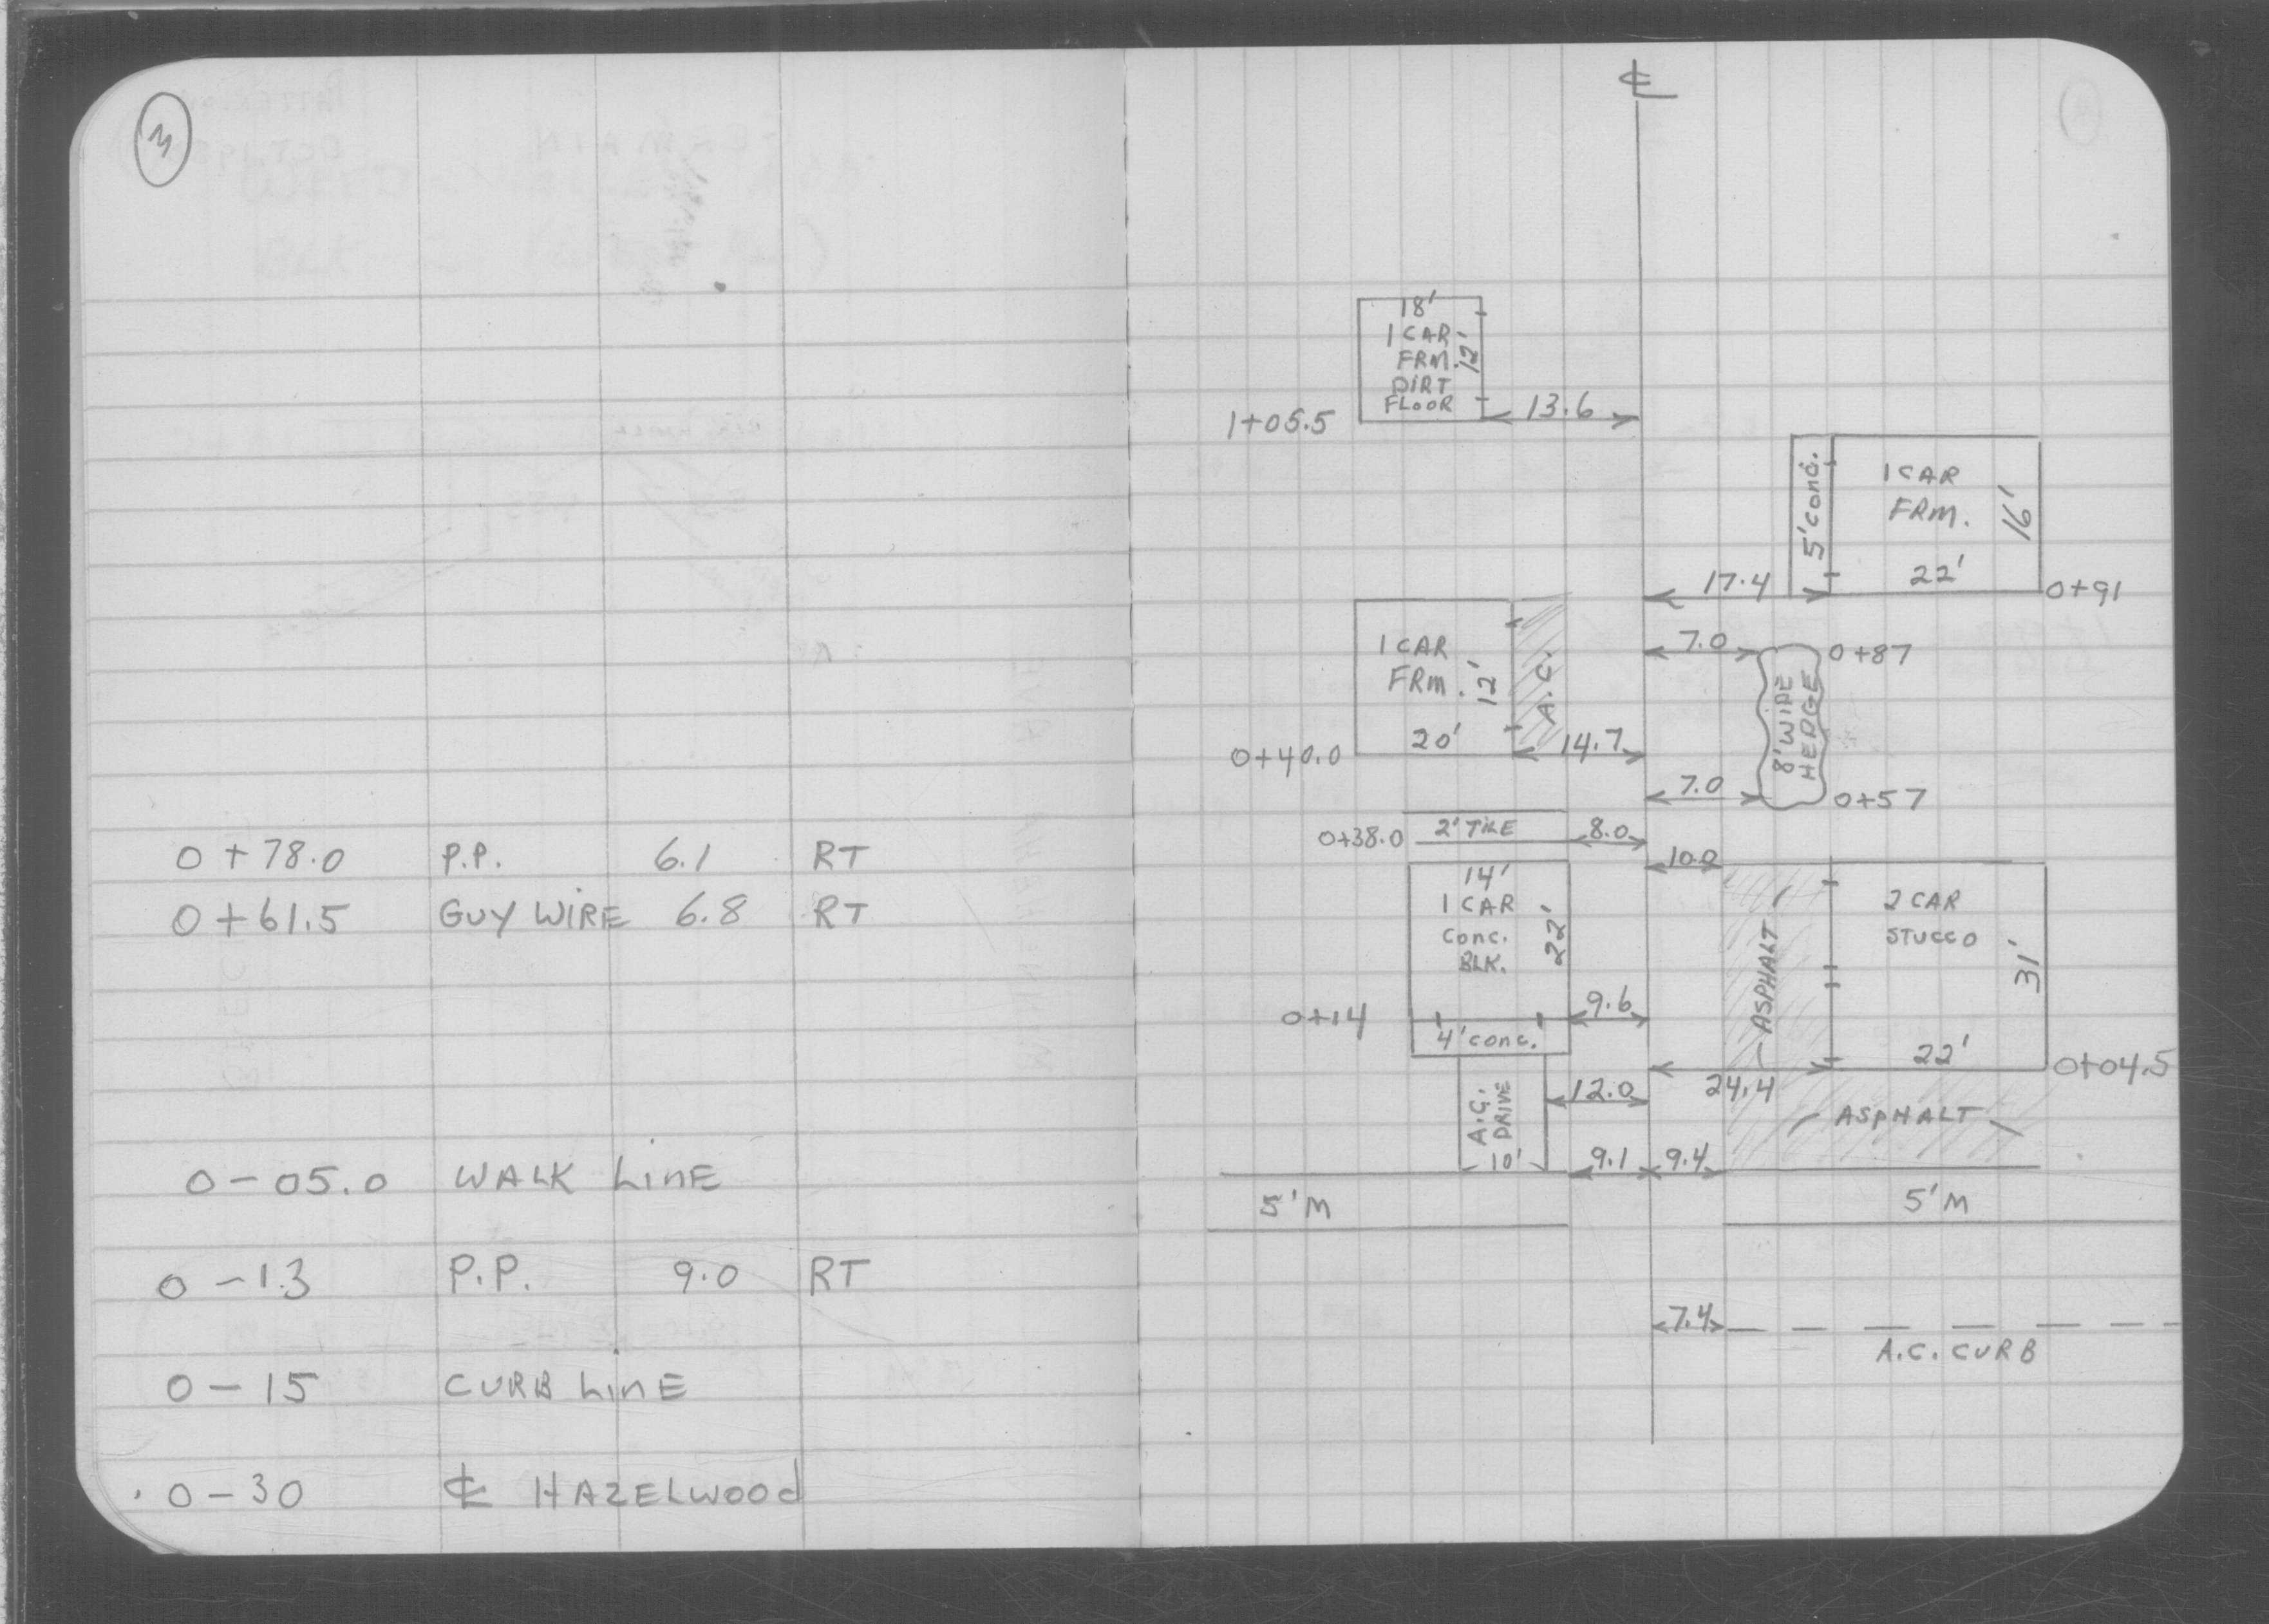 3
0+78.0 P.P. 6.1 RT
0+61.5 GUY WIRE 6.8 RT
0-05.0 WALK LINE
0-13 P.P. 9.0 RT
0-15 CURB LINE
0-30 ℄ HAZELWOOD
℄
18'
1 CAR
FRM.
DIRT
FLOOR
12'
1+05.5
13.6
5' CONC.
1 CAR
FRM.
16'
22'
17.4
0+91
1 CAR
FRM.
12'
20'
A.C.
0+40.0
14.7
7.0
0+87
8' WIDE
HEDGE
7.0
0+57
0+38.0
2' TILE
8.0
10.0
14'
1 CAR
CONC.
BLK.
22'
0+14
9.6
4' CONC.
ASPHALT
2 CAR
STUCCO
31'
22'
0+04.5
24.4
A.C.
DRIVE
10'
12.0
ASPHALT
9.1
9.4
5' M
5' M
7.4
A.C. CURB